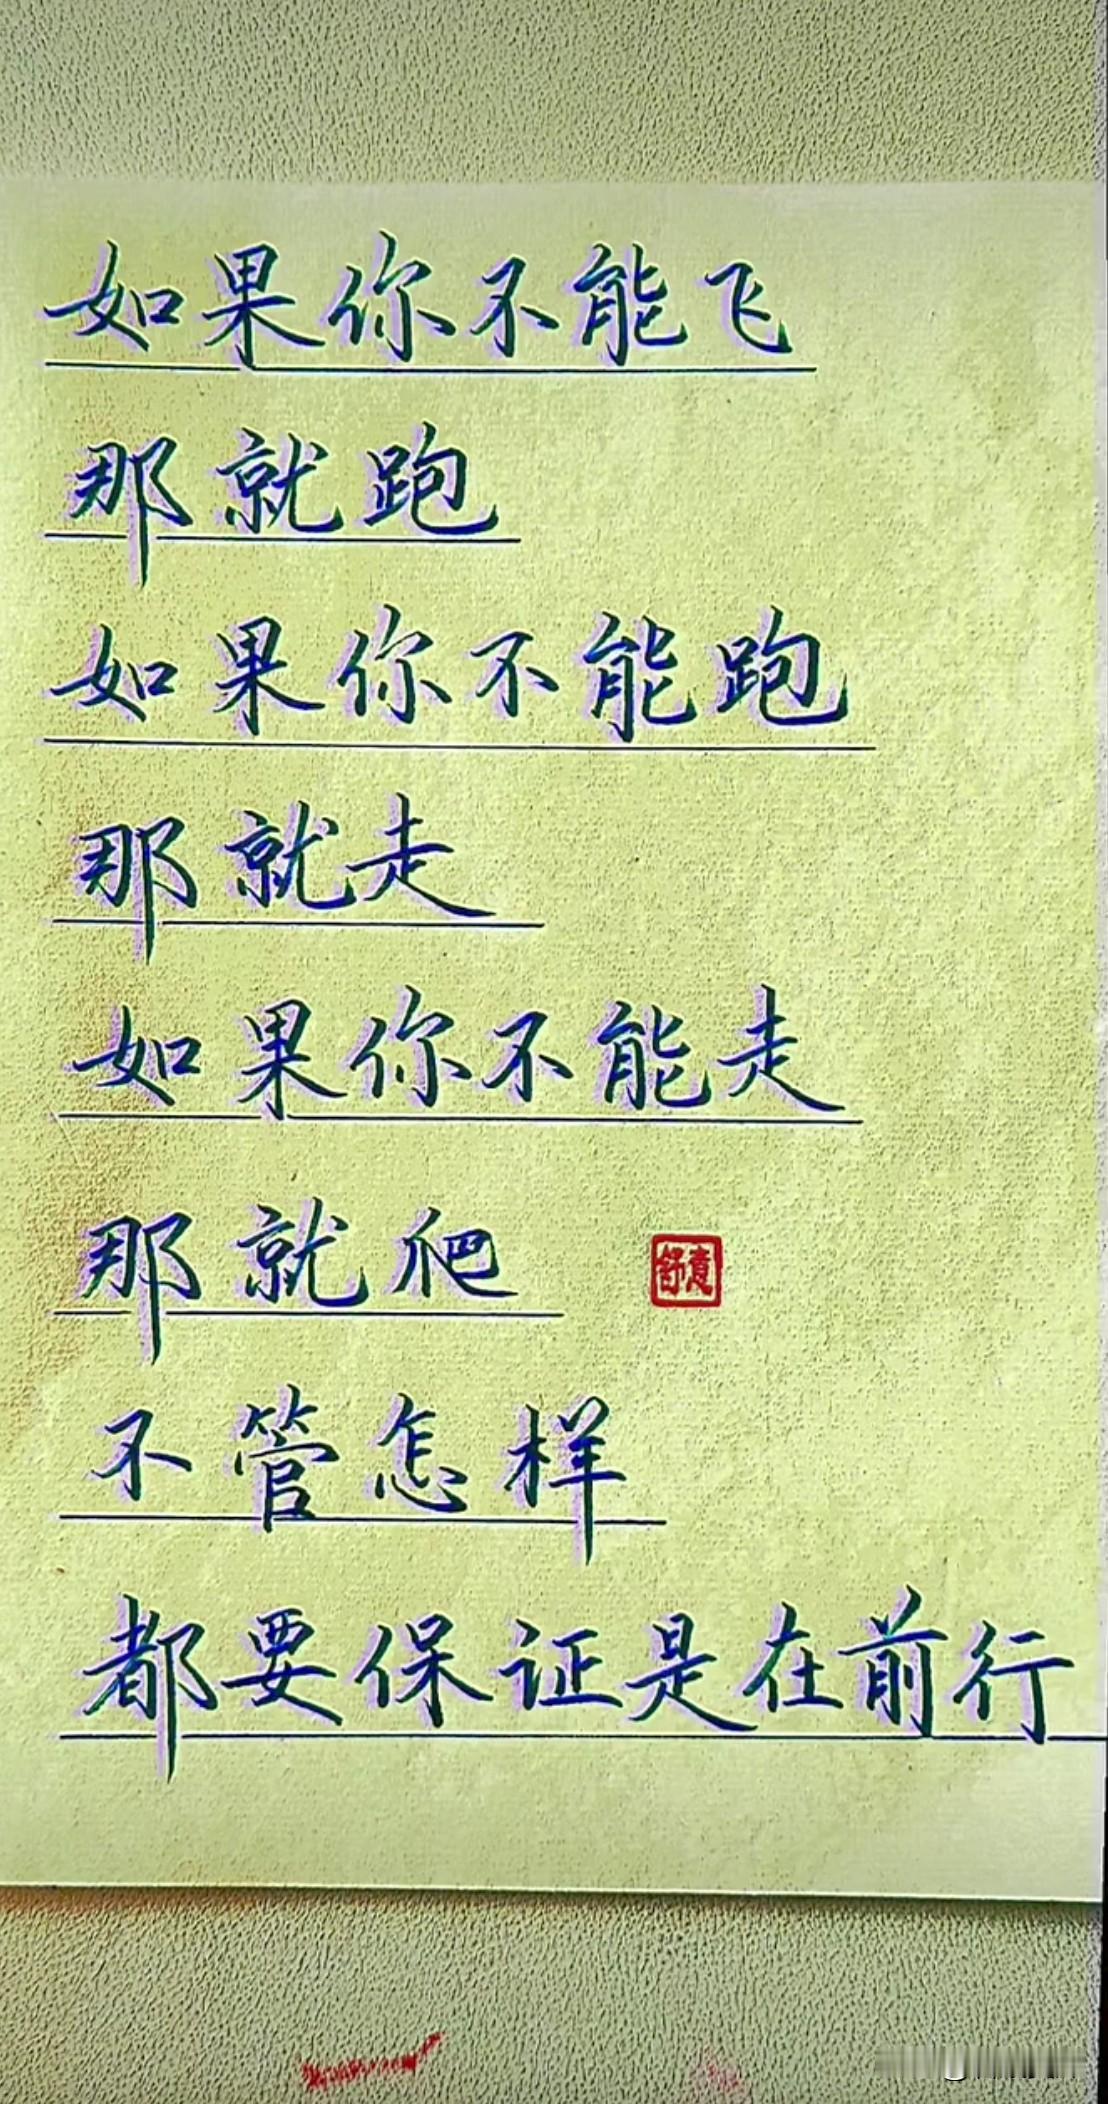 如果你不能飞
那就跑
如果你不能跑
那就走
如果你不能走
那就爬
舒意
不管怎样
都要保证是在前行